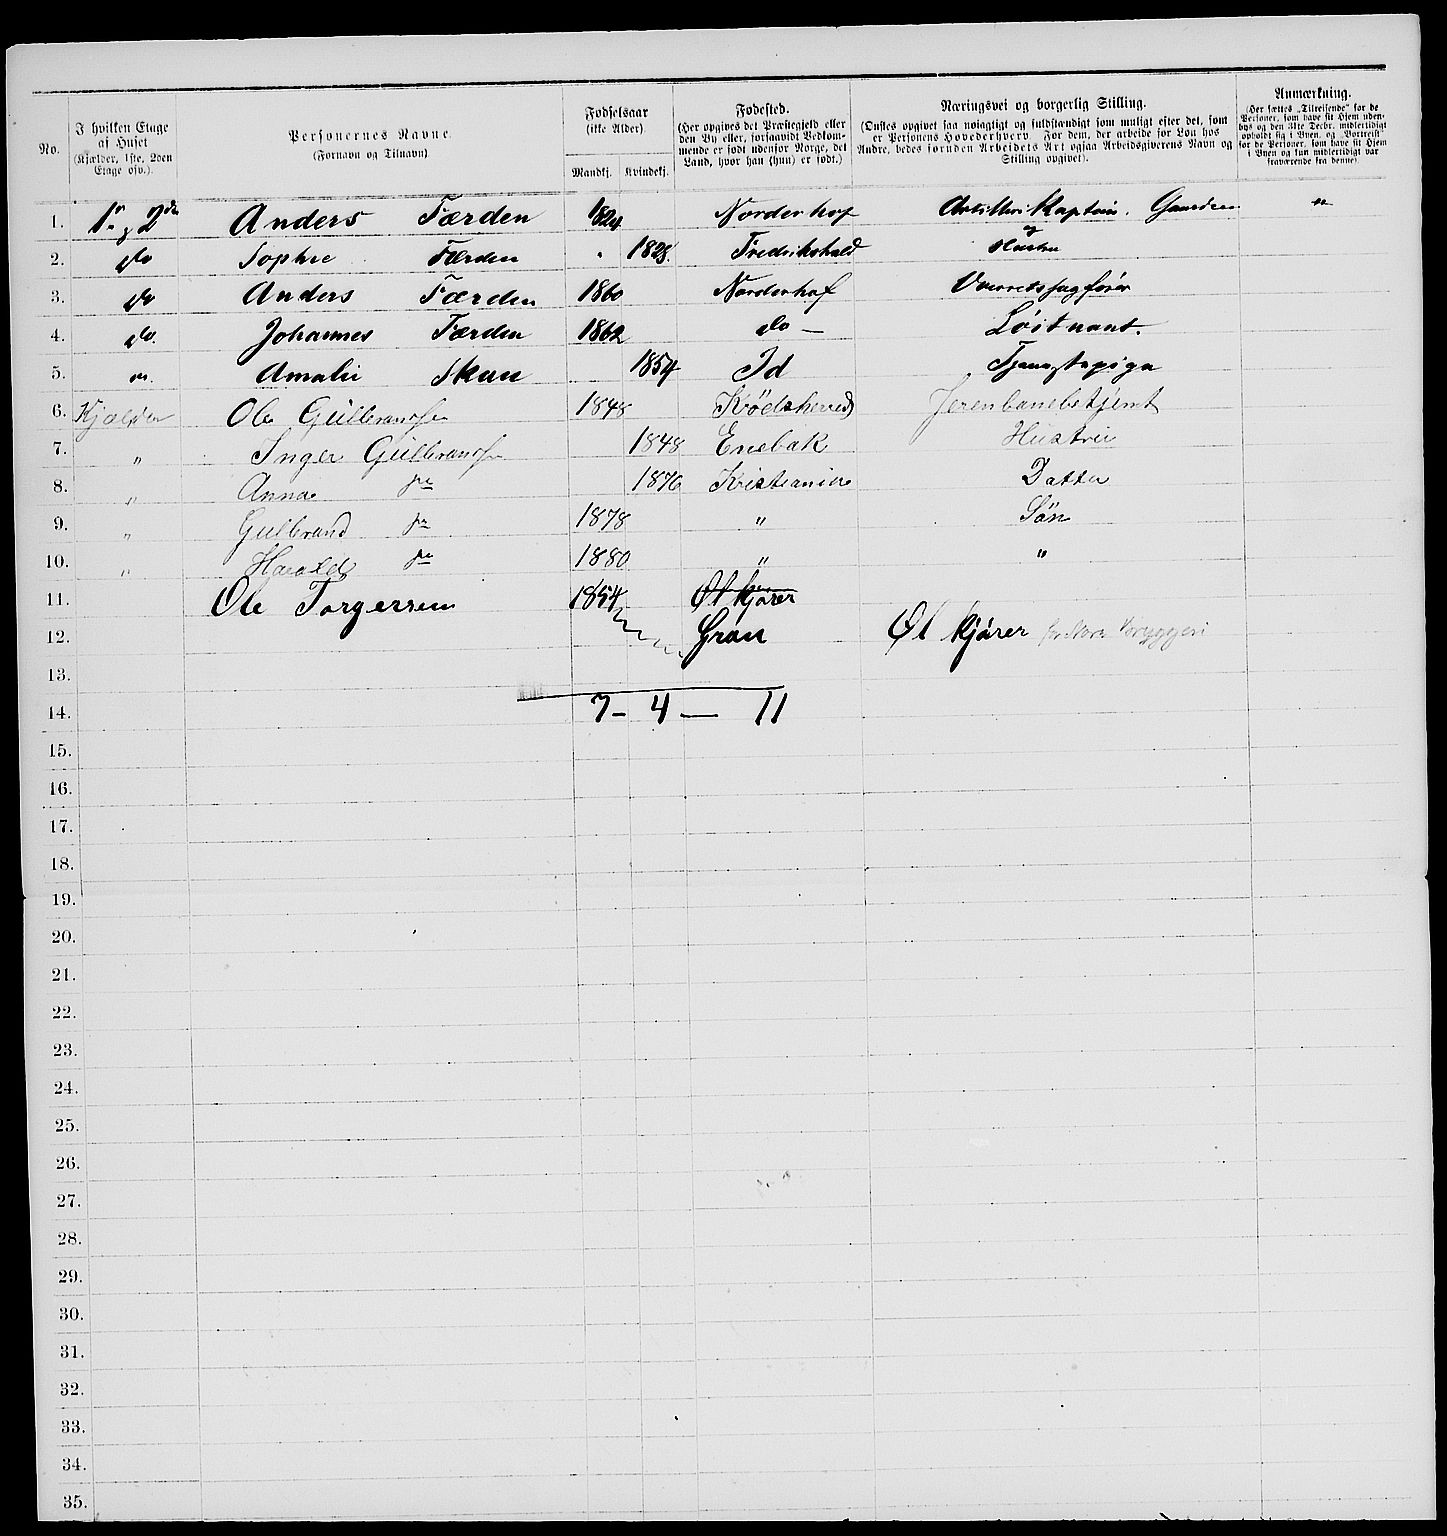 No.
I hvilken Etage af Huset (Kjælder, 1ste, 2den Etage osv.).
Personernes Navne. (Fornavn og Tilnavn)
Fødselsaar (ikke Alder). Mandkj. Kvindekj.
Fødested. (Her opgives det Præstegjeld eller den By eller, forsaavidt Vedkommende er født udenfor Norge, det Land, hvor han (hun) er født.)
Næringsvei og borgerlig Stilling. (Ønskes opgivet saa nøiagtigt og fuldstændigt som muligt efter det, som er Personens Hovederhverv. For dem, der arbeide for Løn hos Andre, bedes foruden Arbeidets Art ogsaa Arbeidsgiverens Navn og Stilling opgivet).
Anmærkning. (Her sættes „Tilreisende“ for de Personer, som have sit Hjem udenbys og den 31te Decbr. midlertidigt opholdt sig i Byen, og „Bortreist“ for de Personer, som have sit Hjem i Byen og kun midlertidigt var fraværende fra denne).
1. 1 og 2den Anders Færden 1824 Norderhof Artilleri Kaptein. "
2. do Sophie Færden " 1828 Fredrikshald Hustru
3. do Anders Færden 1860 Norderhof Overretssagfører
4. do. Johannes Færden 1862 do — Løitnant.
5. Amalie Skau 1854 Id Tjenestepige
6. Kjælder Ole Gulbrandsen 1848 Krødsherred Jerenbanebetjent
7. " Inger Gulbrandsen 1848 Enebak Hustru
8. " Anna 1876 Kristiania Datter
9. " Gulbrand 1878 " Søn
10. " Harald 1880 " "
11. Ole Torgersen 1854 Øl kjører
12. Gran Øl kjører for Bryggeri
13.
14. 7 - 4 — 11
15.
16.
17.
18.
19.
20.
21.
22.
23.
24.
25.
26.
27.
28.
29.
30.
31.
32.
33.
34.
35.